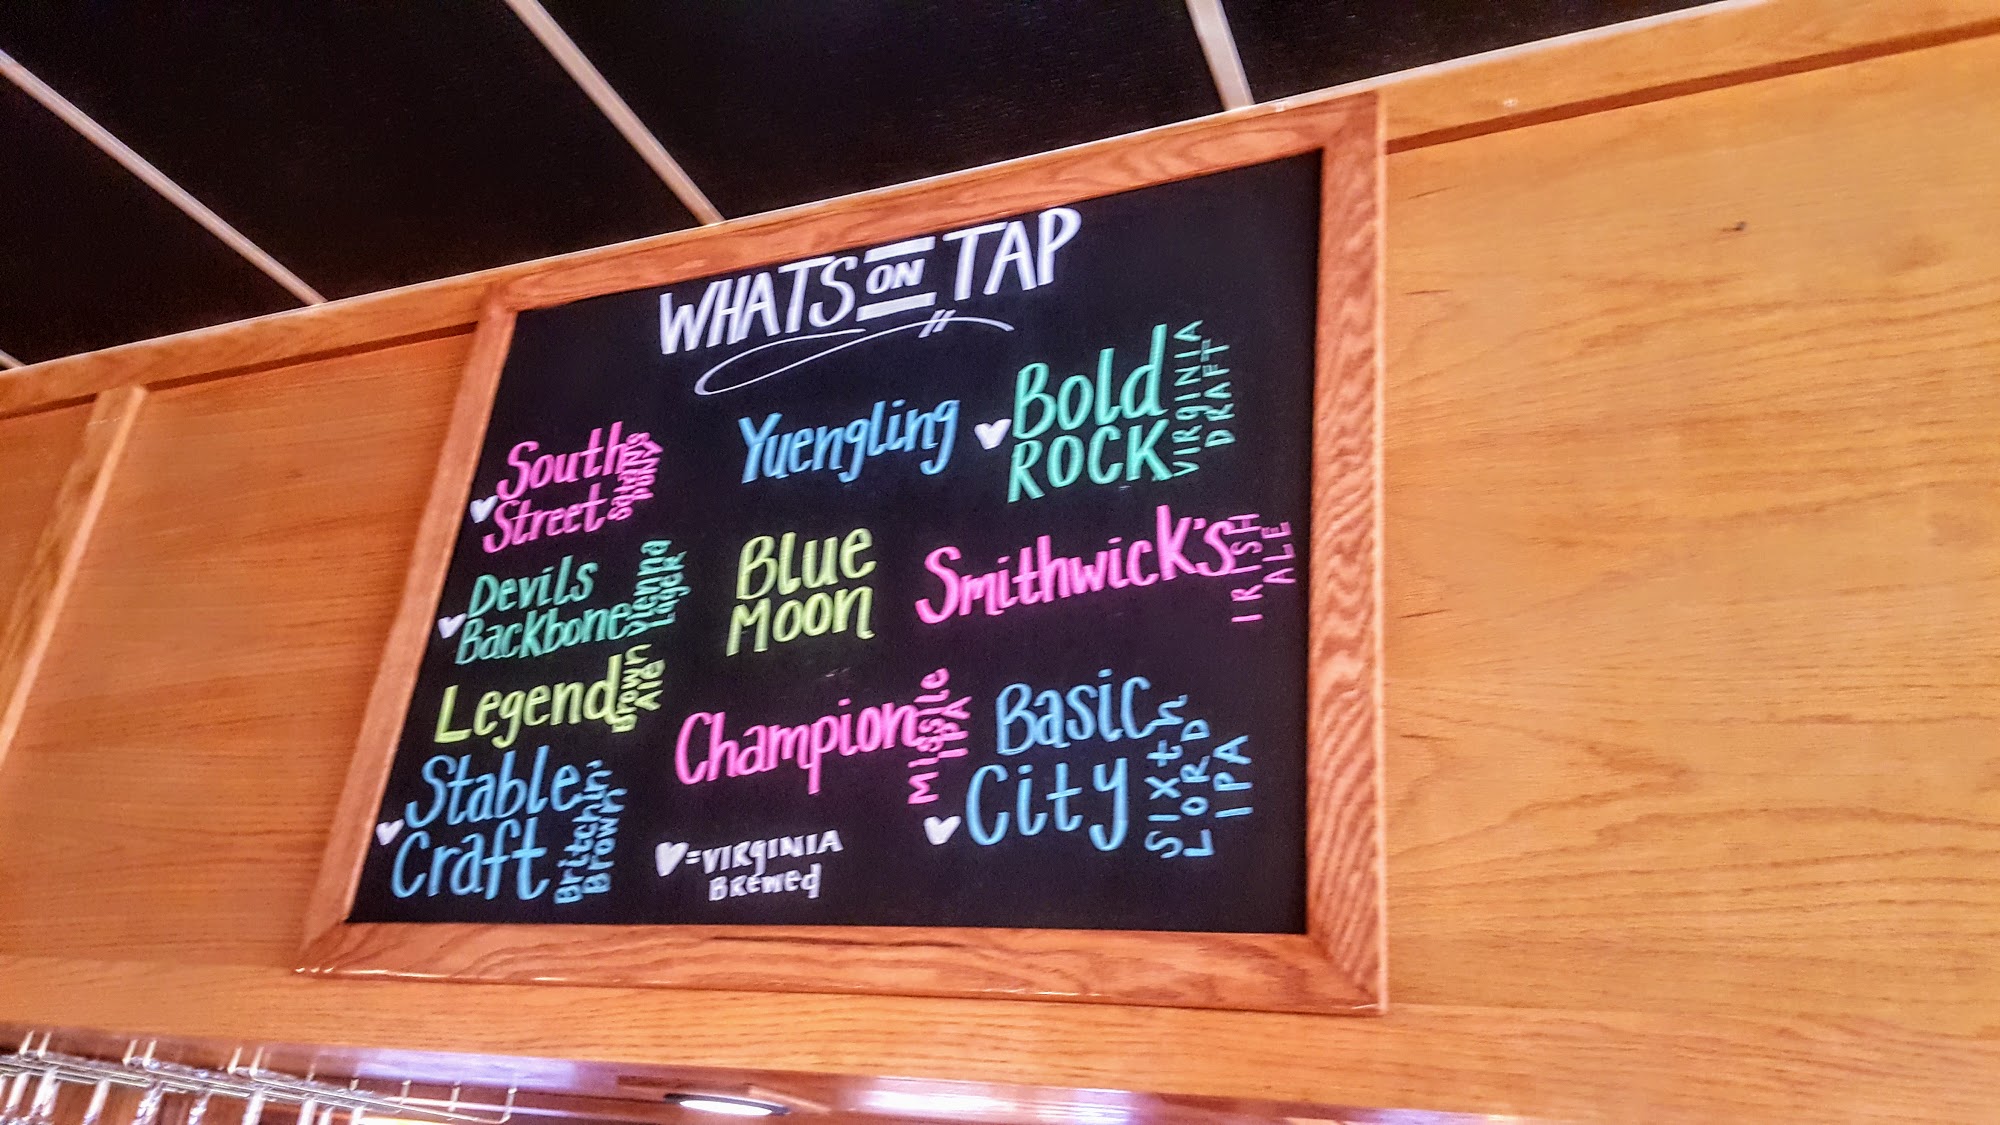 WHATS ON TAP
South
Street
Satans
Pony
Yuengling
Bold
ROCK
VIRGINIA
DRAFT
Devils
Backbone
Vienna
Lager
BLUE
MOON
Smithwick's
IRISH
ALE
Legend
Brown
Ale
Champion
Missile
IPA
Basic
City
Sixth
LORD
IPA
Stable
Craft
Britchin'
Brown
♥=VIRGINIA
BREWED